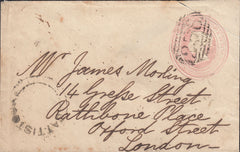 Mr James Morling
14 Gresse Street
Rathbone Place
Oxford Street
London